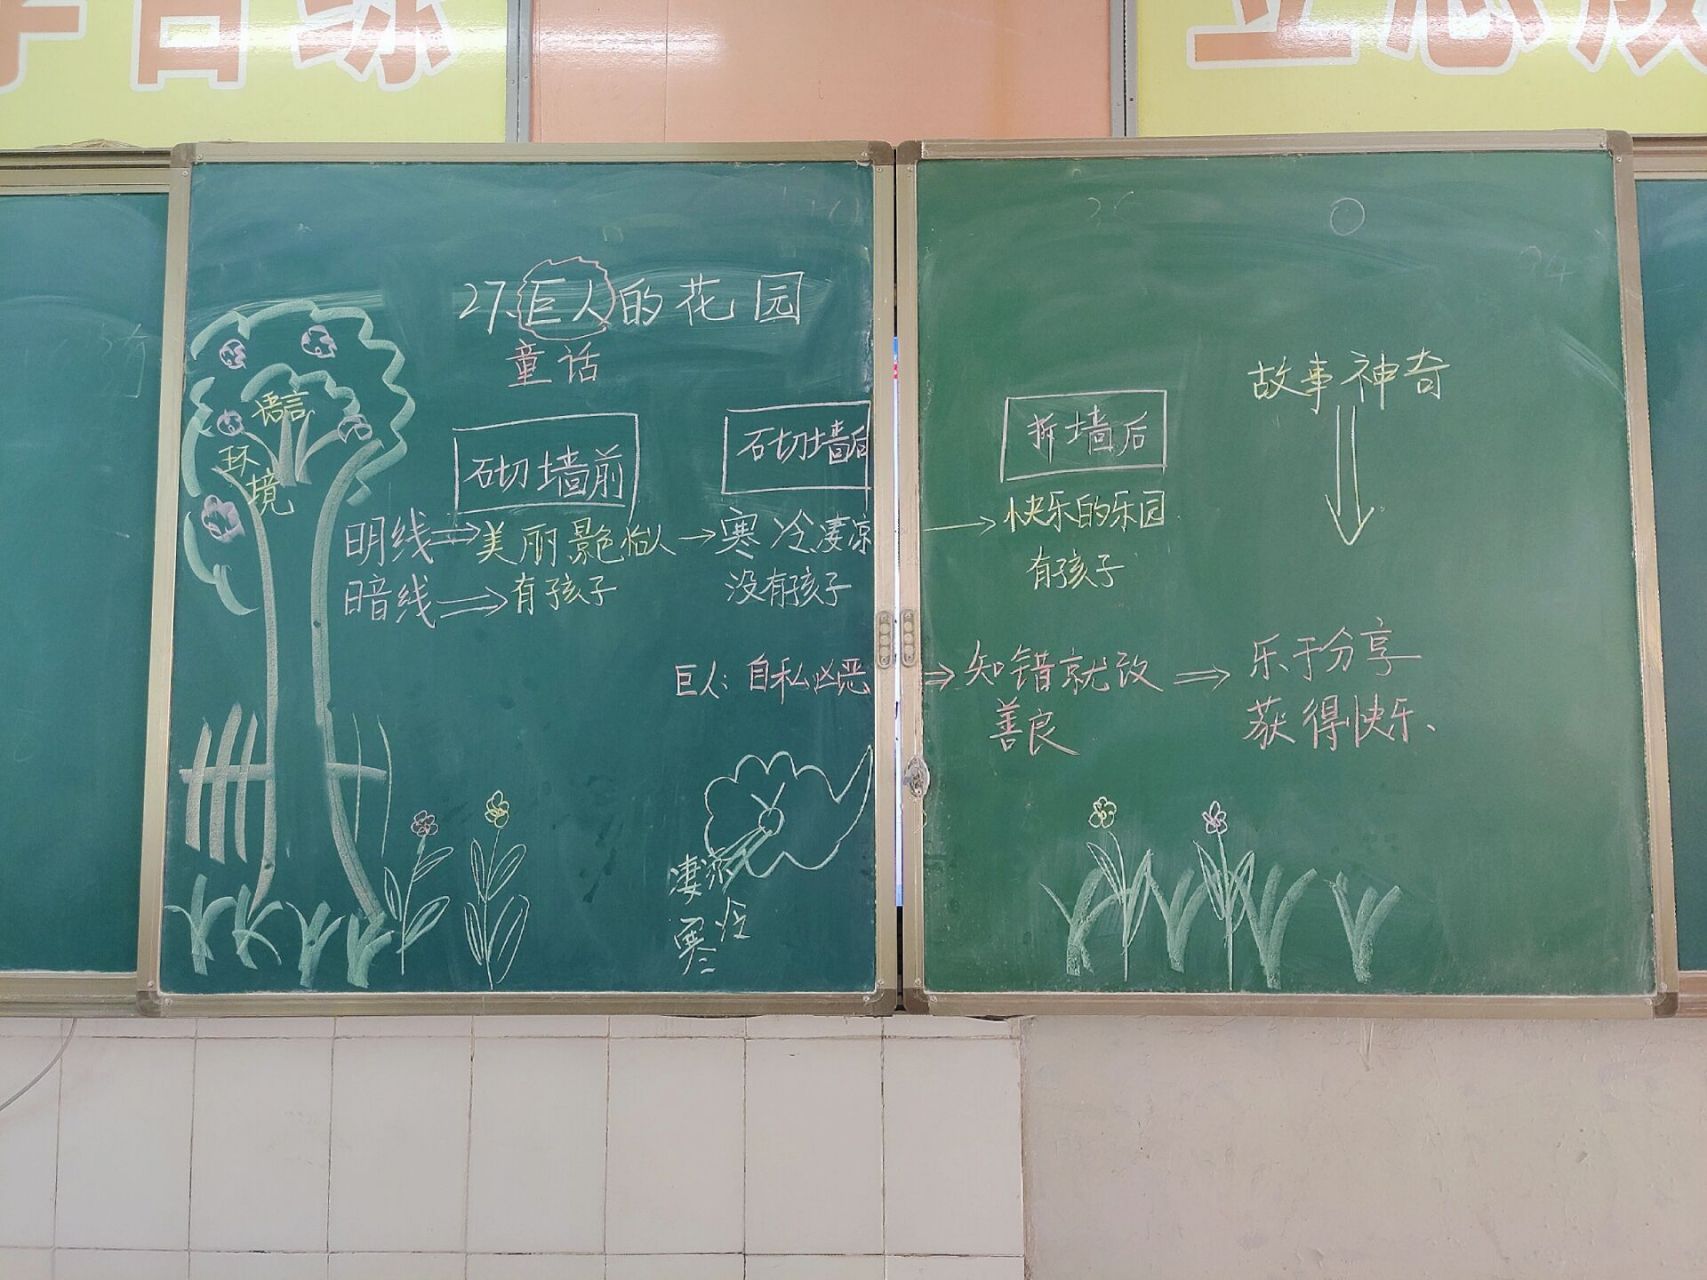 日练
27.巨人的花园
童话
语言
环境
砌墙前
砌墙后
拆墙后
故事神奇
明线⇒美丽景色怡人→寒冷凄凉→快乐的乐园
暗线⇒有孩子
没有孩子
有孩子
巨人:自私凶恶⇒知错就改⇒乐于分享
善良
获得快乐、
凄凉
寒冷